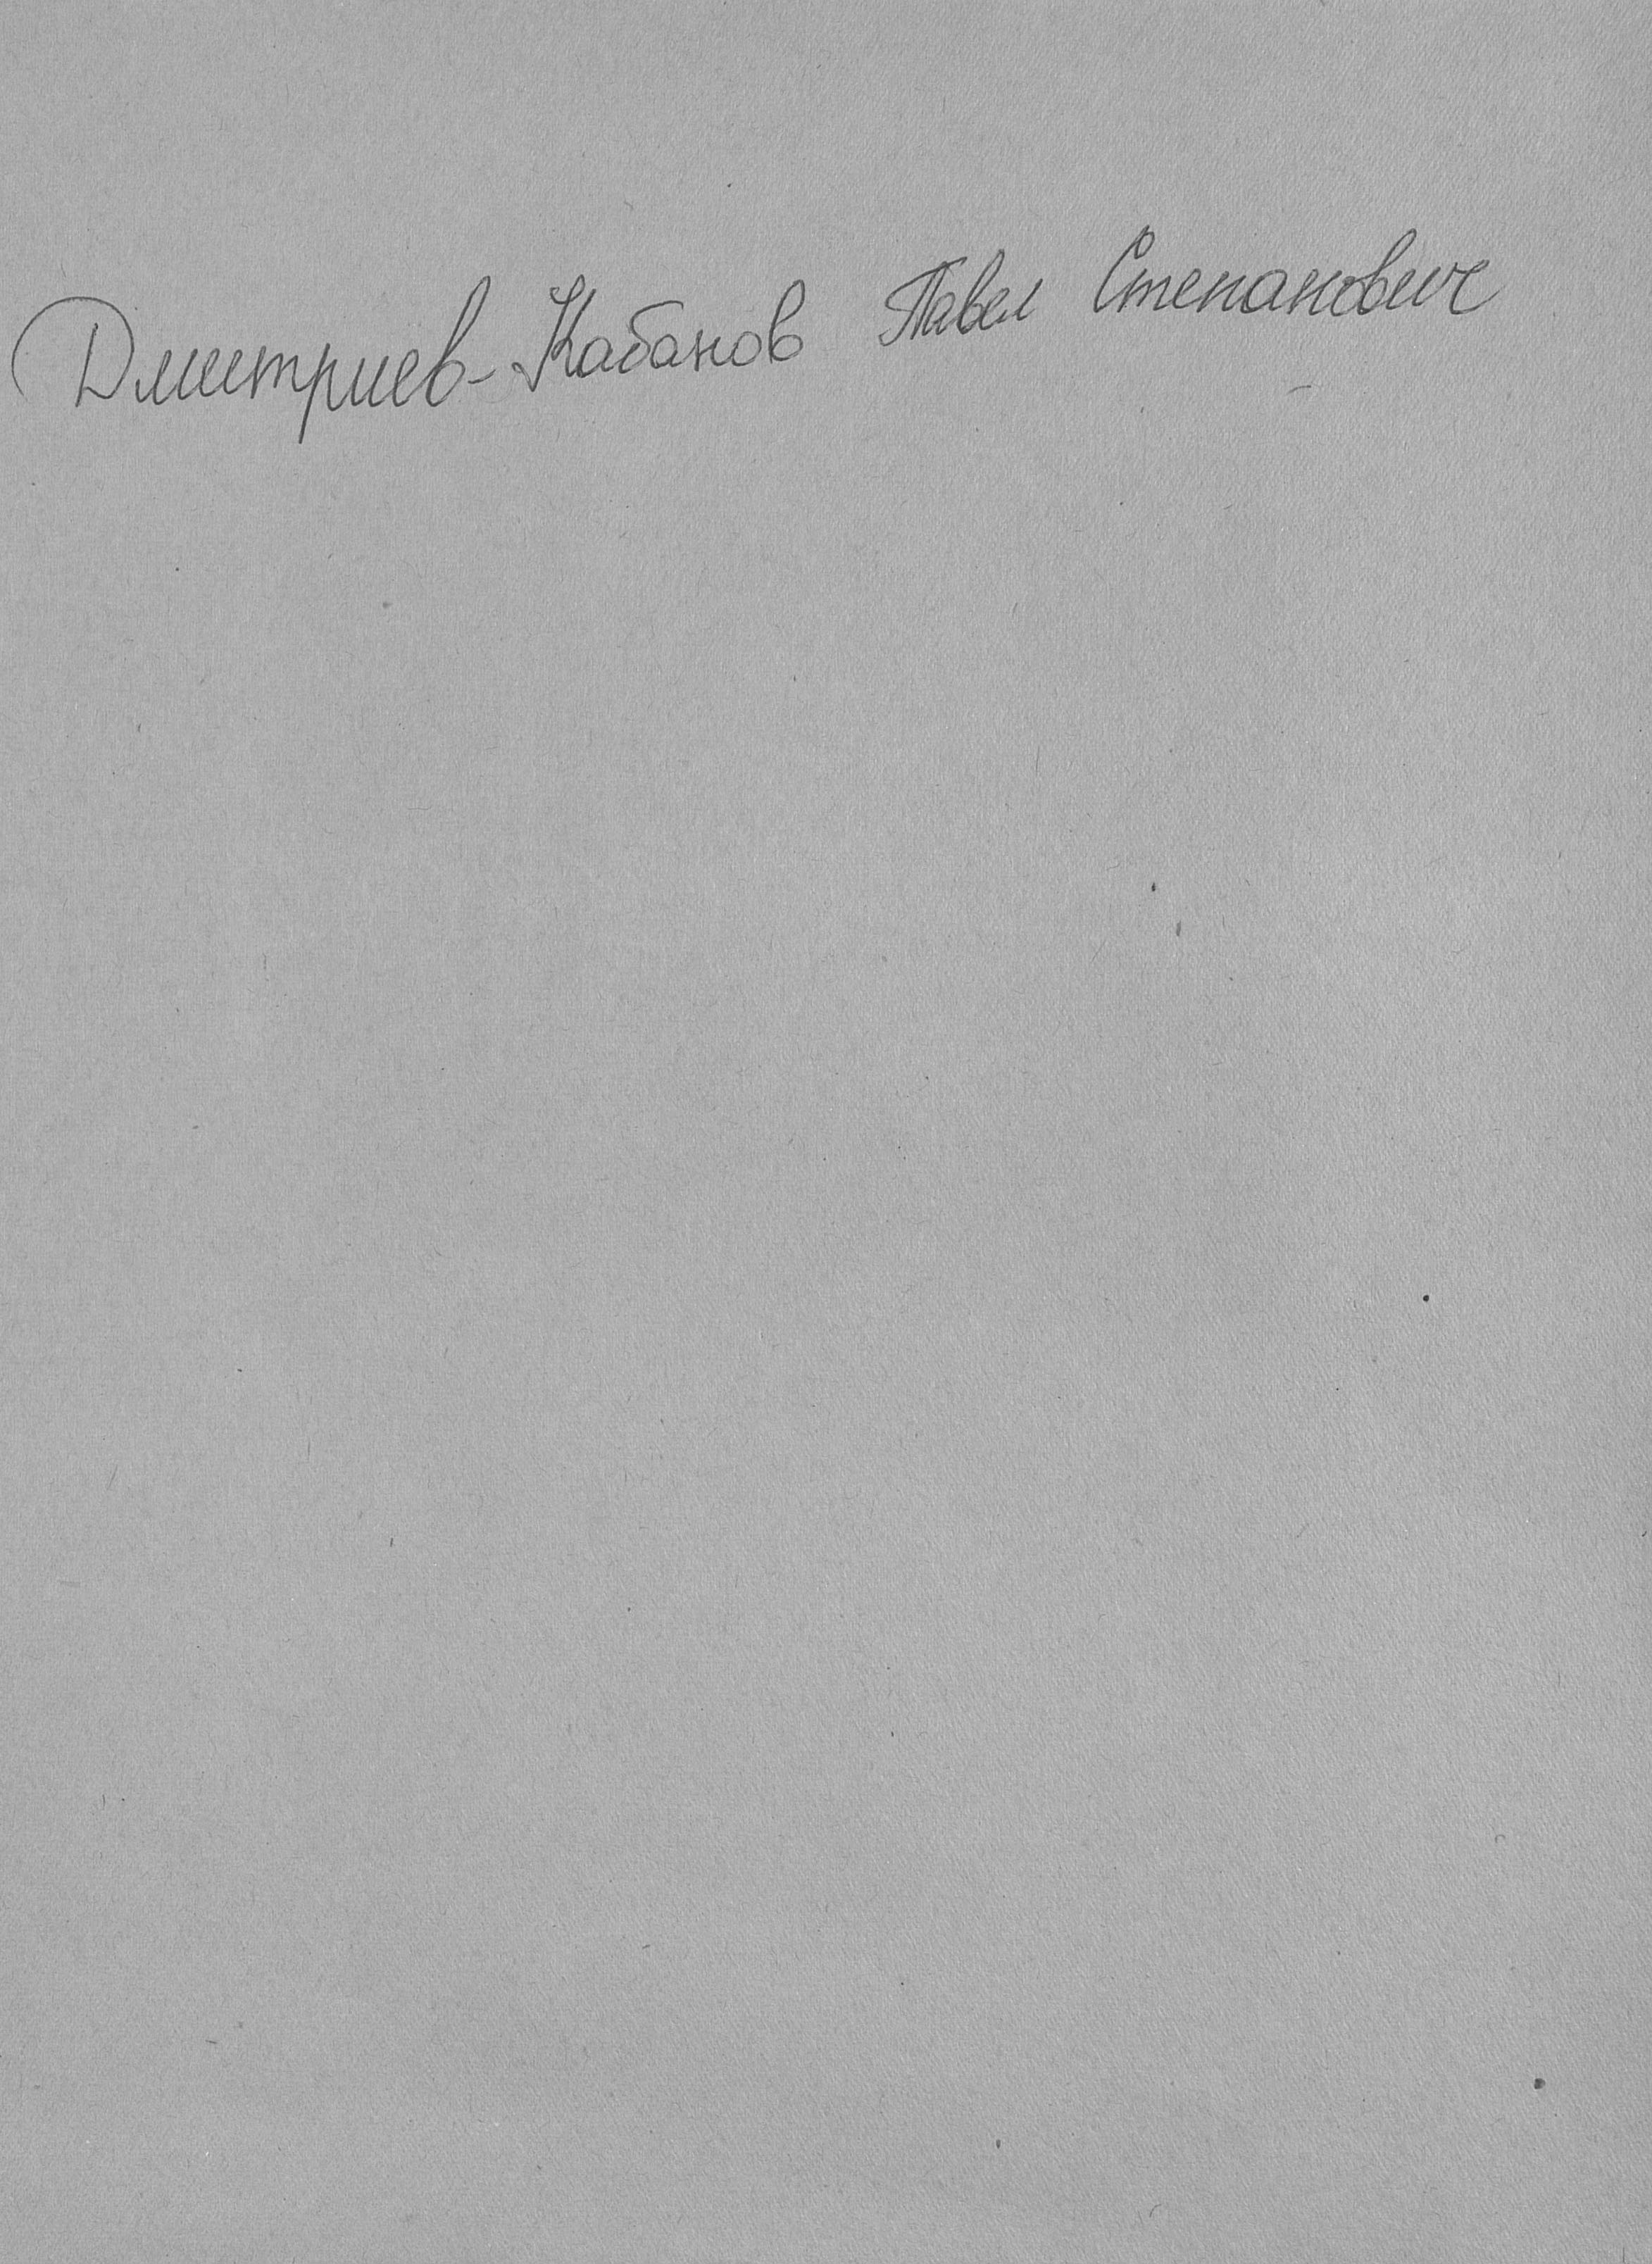 Дмитриев-Кабанов Павел Степанович